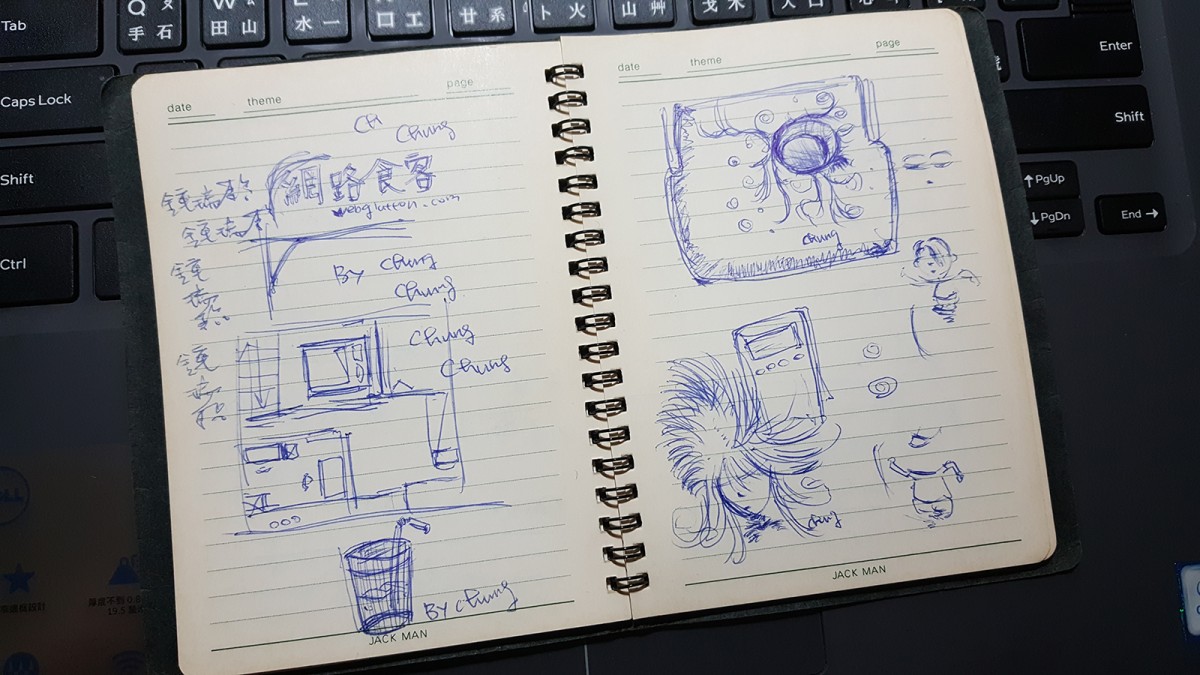 Tab
Q 手 石
W 田 山
水 一
口 工
廿 系
卜 火
山 艸
戈 木
人 口
Enter
Caps Lock
Shift
Shift
Ctrl
PgUp
PgDn
End
date theme page
Ch
Chung
網路食客
webglutton.com
By Chung
Chung
Chung
Chung
By Chung
JACK MAN
date theme page
Chung
Chung
JACK MAN
DELL